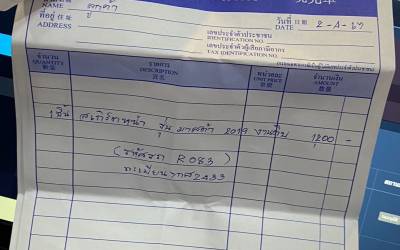 NAME ลูกค้า
ที่อยู่ 住址
ADDRESS
วันที่ 日期
DATE 2-A-67
เลขประจำตัวประชาชน
IDENTIFICATION NO.
เลขประจำตัวผู้เสียภาษีอากร
TAX IDENTIFICATION NO.
จำนวน รายการ หน่วยละ จำนวนเงิน
QUANTITY DESCRIPTION UNIT PRICE AMOUNT
數量 貨名 單價 數額
1 ชิ้น สเกิร์ตหน้า รุ่น มาสด้า 2019 งานดิบ 1,800 -
(รหัสรถ R083)
ทะเบียน 7กส2433